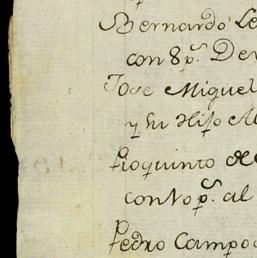 Bernardo Le
con 8 p.s De
Jose Miguel
y su Hijo A
Pioquinto de
con 10 p.s al
Pedro Campo